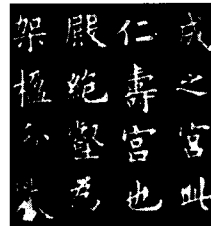 成之宮此
仁壽宮也
殿絕壑為
架楹分巖